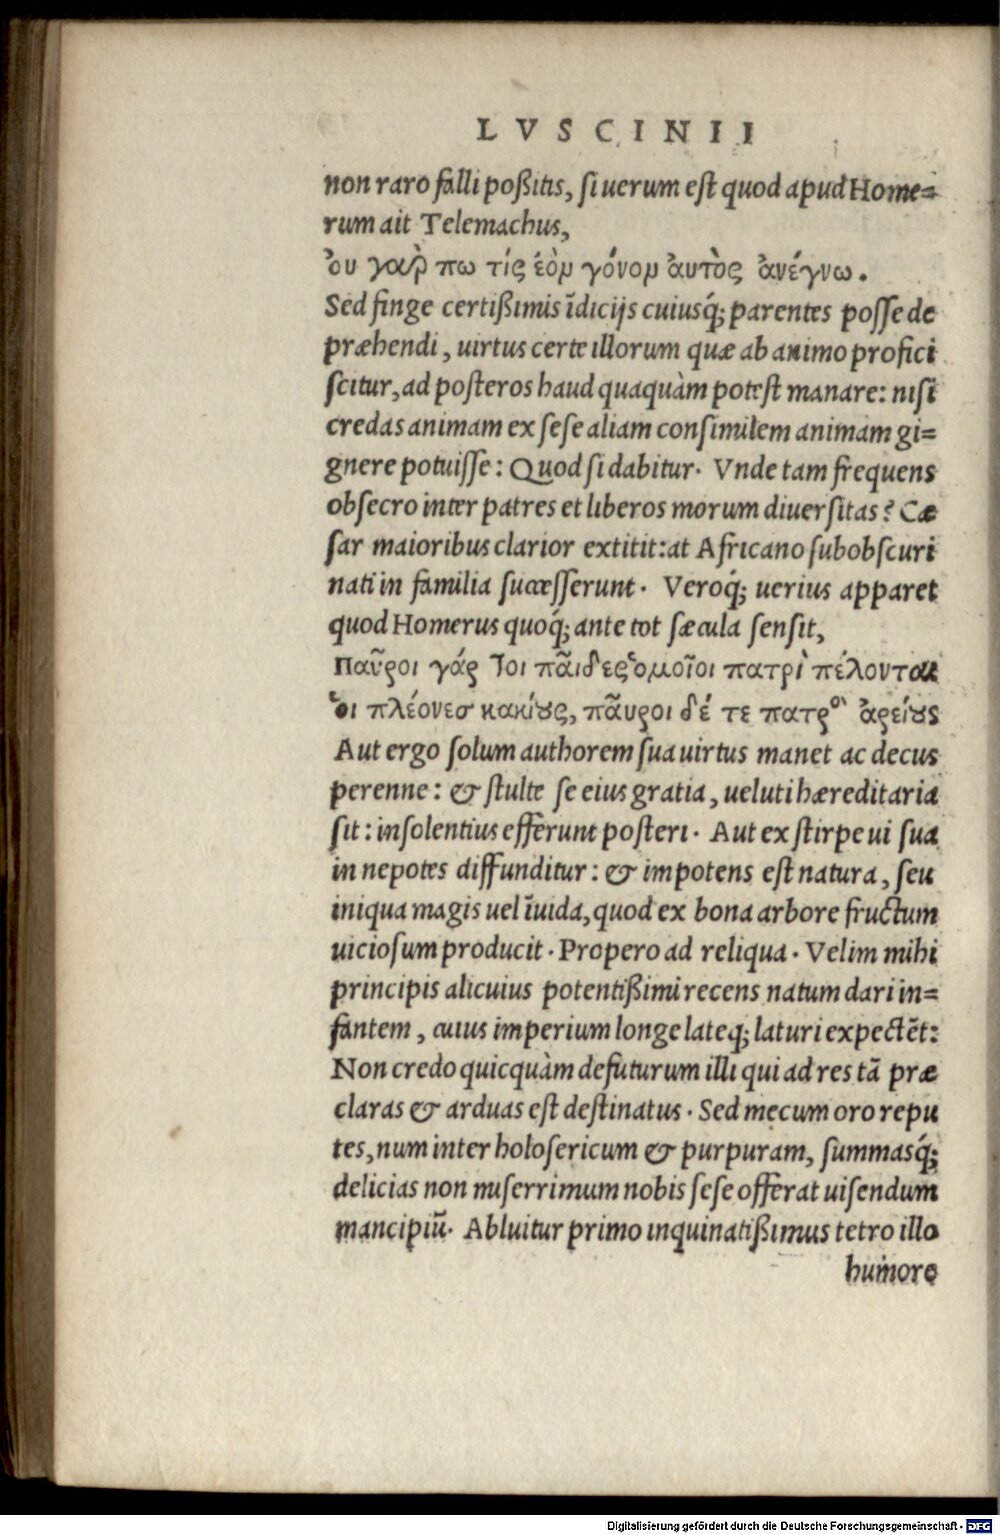 LVSCINII
non raro falli poßitis, si uerum est quod apud Home=
rum ait Telemachus,
ὀυ γαρ̀ πω τίς ἑὸν γόνον ἀυτὸς ἀνέγνω.
Sed finge certißimis īdicijs cuiusq́; parentes posse de
præhendi, uirtus certe illorum quæ ab animo profici
scitur, ad posteros haud quaquàm potest manare: nisi
credas animam ex sese aliam consimilem animam gi=
gnere potuisse: Quod si dabitur. Vnde tam frequens
obsecro inter patres et liberos morum diuersitas? Cæ
sar maioribus clarior extitit: at Africano subobscuri
nati in familia successerunt. Veroq́; uerius apparet
quod Homerus quoq́; ante tot sæcula sensit,
Παῦροι γάρ Τοι πᾶιδες ὁμοῖοι πατρὶ πέλονται
ὁι πλέονεσ κακίȣς, πᾶυροι δέ τε πατρὸς ἀρείȣς
Aut ergo solum authorem sua uirtus manet ac decus
perenne: & stulte se eius gratia, ueluti hæreditaria
sit: insolentius efferunt posteri. Aut ex stirpe ui sua
in nepotes diffunditur: & impotens est natura, seu
iniqua magis uel īuida, quod ex bona arbore fructum
uiciosum producit. Propero ad reliqua. Velim mihi
principis alicuius potentißimi recens natum dari in=
fantem, cuius imperium longe lateq; laturi expectēt:
Non credo quicquàm defuturum illi qui ad res tā præ
claras & arduas est destinatus. Sed mecum oro repu
tes, num inter holosericum & purpuram, summasq́;
delicias non miserrimum nobis sese offerat uisendum
mancipiū. Abluitur primo inquinatißimus tetro illo
humore
Digitalisierung gefördert durch die Deutsche Forschungsgemeinschaft - DFG